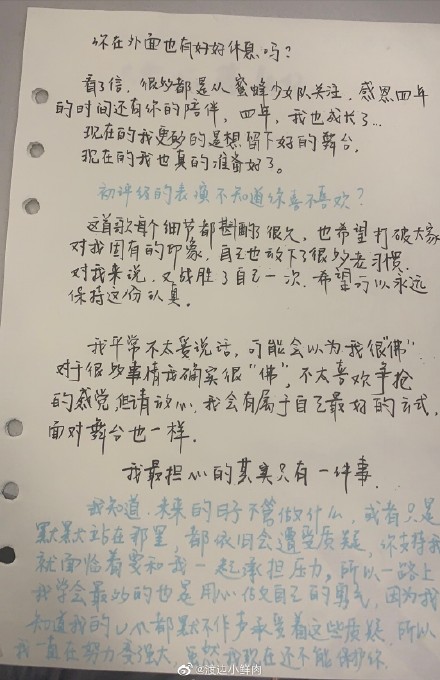 你在外面也有好好休息吗？
看了信，很多都是从蜜蜂少女队关注，感恩四年
的时间还有你的陪伴，四年，我也成长了...
现在的我更多的是想留下好的舞台，
现在的我也真的准备好了。
初评级的表演不知道你喜不喜欢？
这首歌每个细节都斟酌了很久，也希望打破大家
对我固有的印象，自己也放下了很多老习惯.
对我来说，又战胜了自己一次，希望可以永远
保持这份认真。
我平常不太爱说话，可能会以为我很"佛"
对于很多事情我确实很"佛"，不太喜欢争抢
的感觉，但请放心，我会有属于自己最好的方式，
面对舞台也一样。
我最担心的其实只有一件事.
我知道，未来的日子不管做什么，或者只是
默默站在那里，都依旧会遭受质疑，你支持我
就面临着要和我一起承担压力，所以一路上
我学会最多的也是用心做自己的勇气，因为我
知道我的 都默不作声承受着这些质疑，所以
我一直在努力变强大，虽然我现在还不能保护你.
@渡边小鲜肉